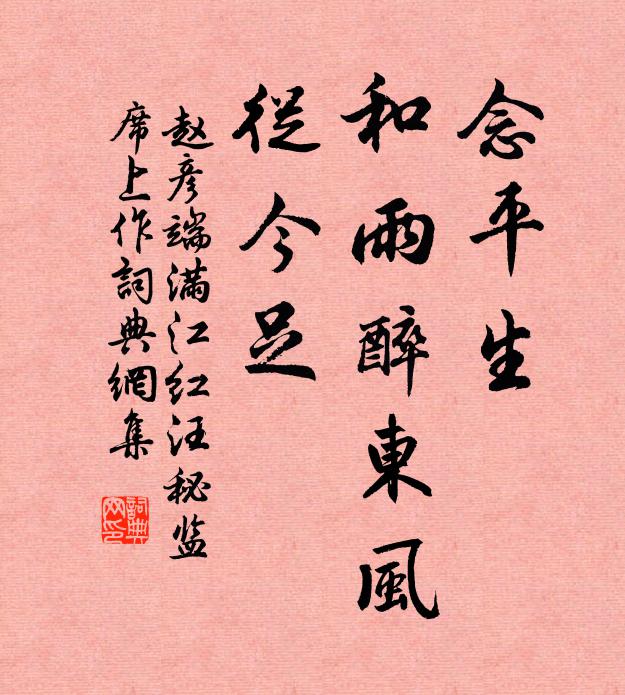 念平生
和雨醉東風
從今足
赵彦端满江红汪秘监
席上作詞典網集
詞典
网印